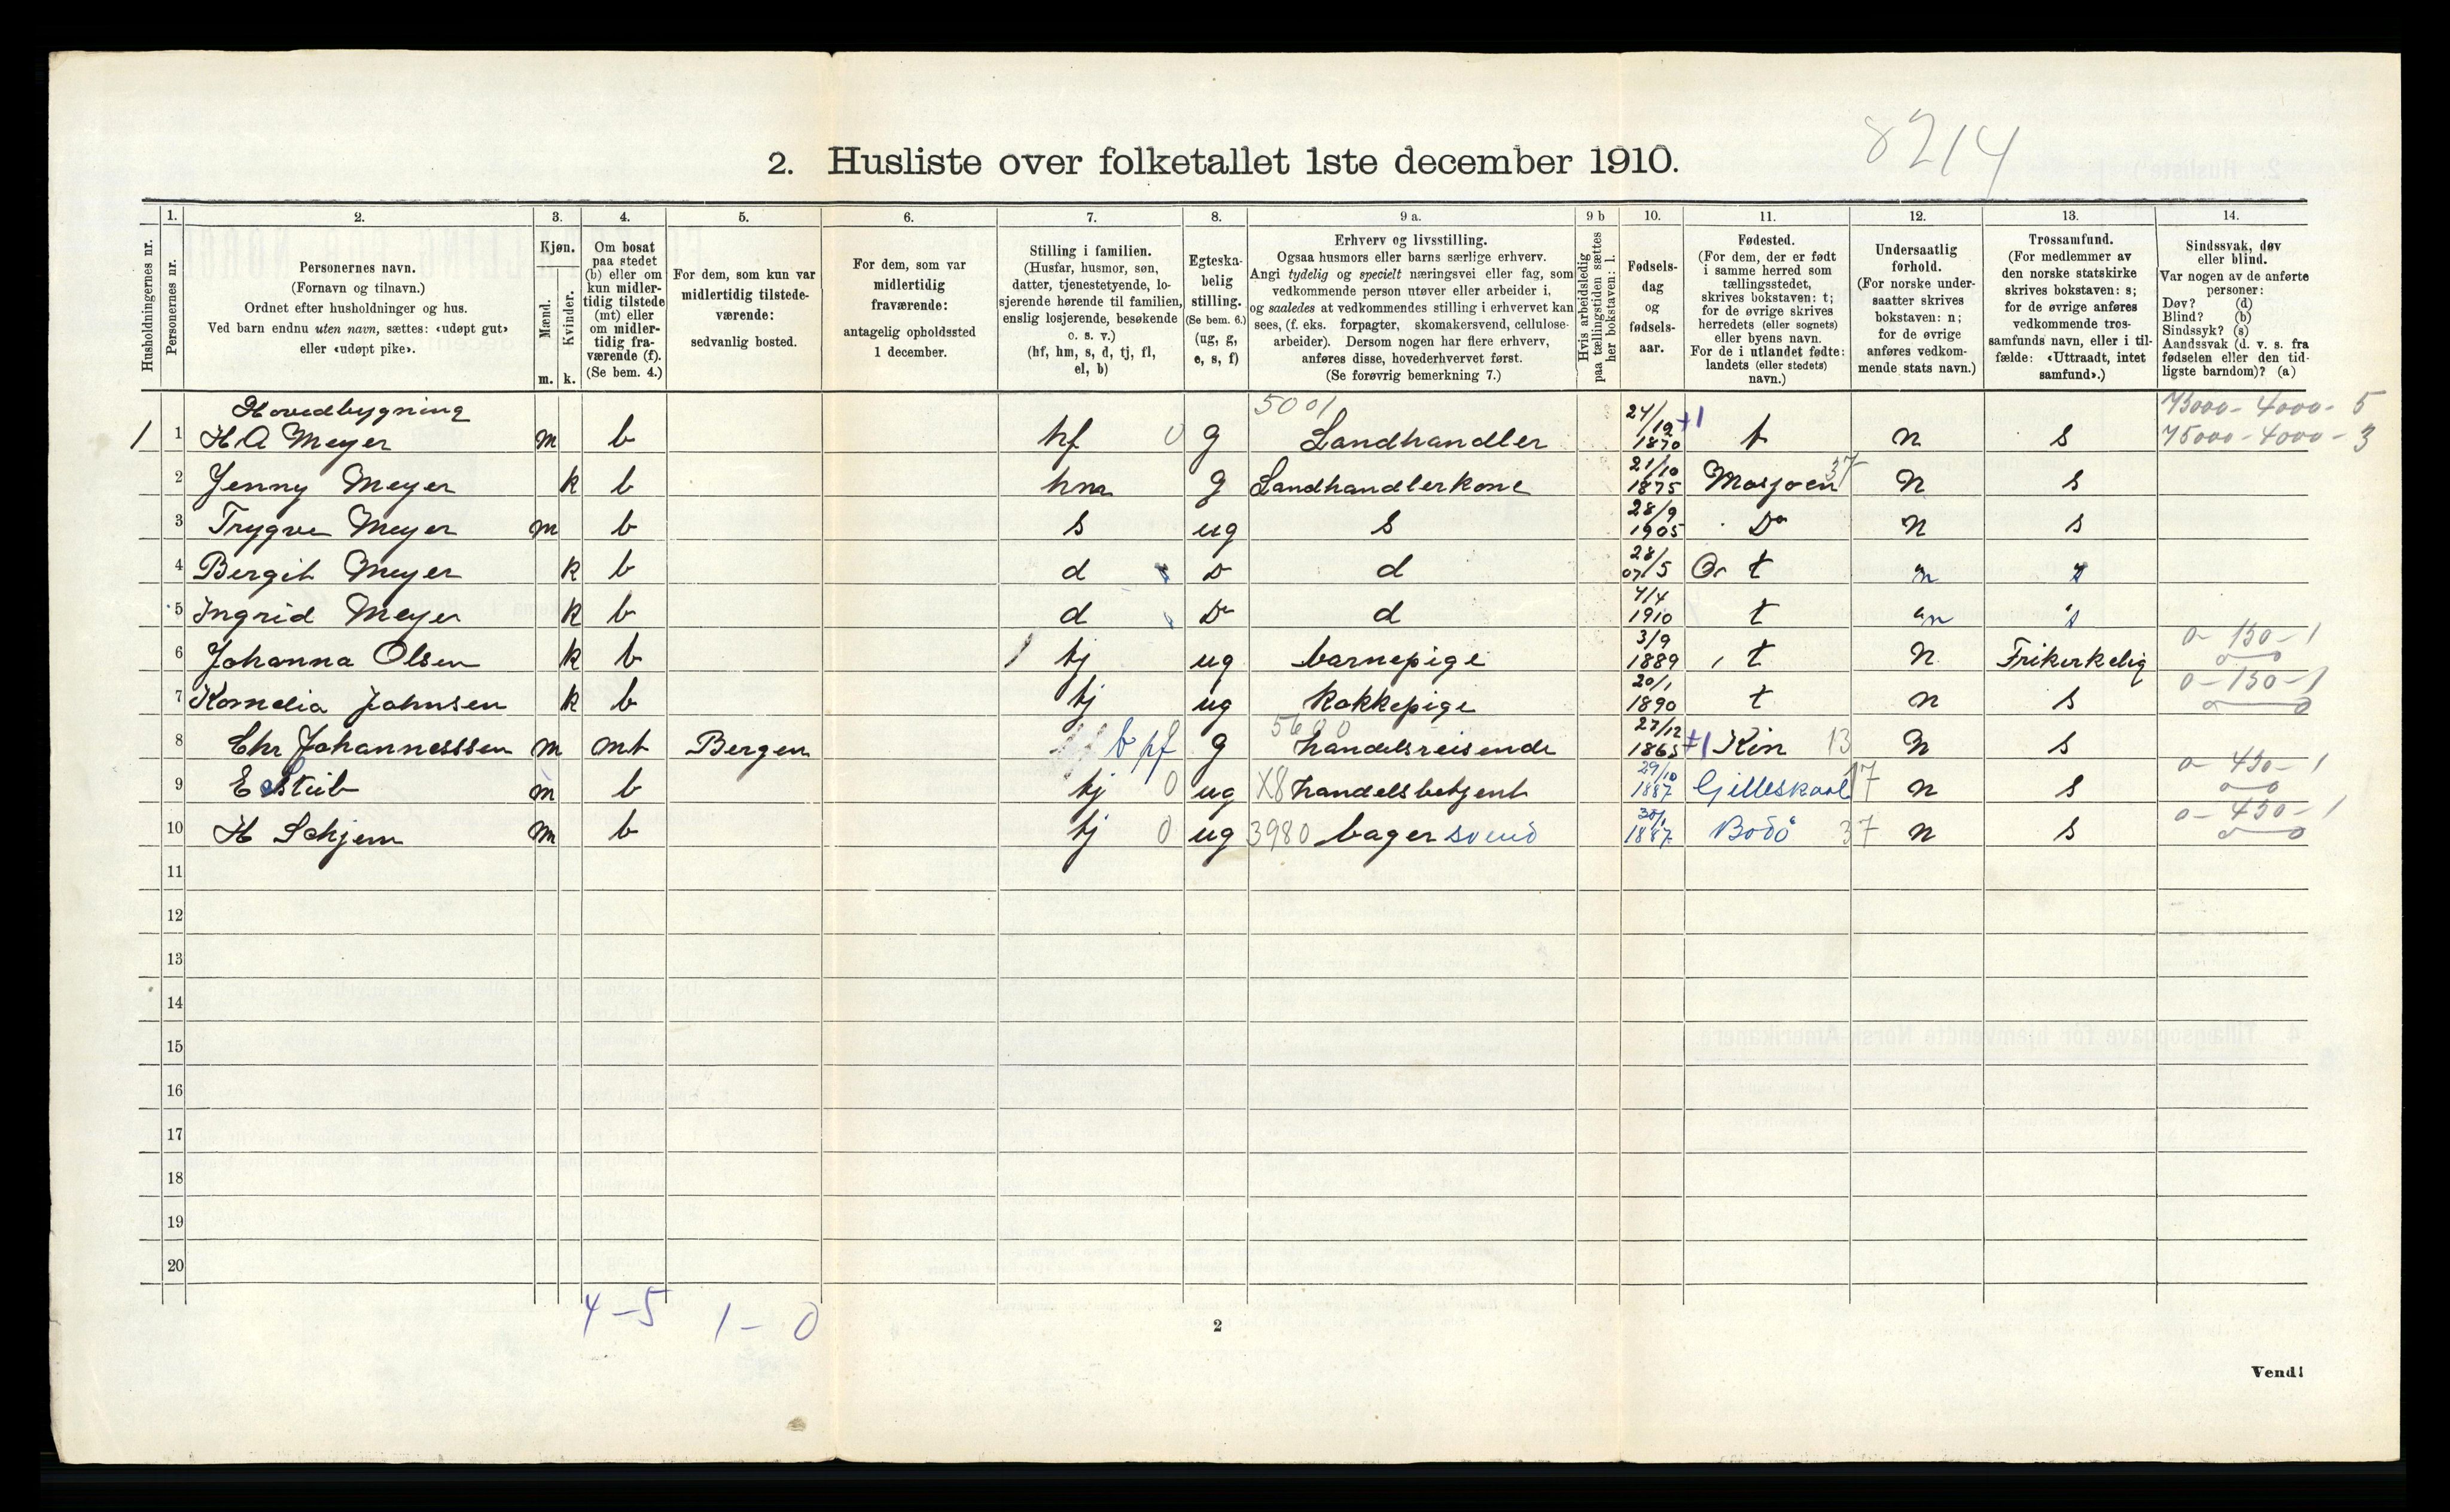 8214
2. Husliste over folketallet 1ste december 1910.
Husholdningernes nr.
1. Personernes nr.
2. Personernes navn.
(Fornavn og tilnavn.)
Ordnet efter husholdninger og hus.
Ved barn endnu uten navn, sættes: «udøpt gut»
eller «udøpt pike».
3. Kjøn.
Mænd. m.
Kvinder. k.
4. Om bosat
paa stedet
(b) eller om
kun midler-
tidig tilstede
(mt) eller
om midler-
tidig fra-
værende (f).
(Se bem. 4.)
5. For dem, som kun var
midlertidig tilstede-
værende:
sedvanlig bosted.
6. For dem, som var
midlertidig
fraværende:
antagelig opholdssted
1 december.
7. Stilling i familien.
(Husfar, husmor, søn,
datter, tjenestetyende, lo-
sjerende hørende til familien,
enslig losjerende, besøkende
o. s. v.)
(hf, hm, s, d, tj, fl,
el, b)
8. Egteska-
belig
stilling.
(Se bem. 6.)
(ug, g,
e, s, f)
9 a. Erhverv og livsstilling.
Ogsaa husmors eller barns særlige erhverv.
Angi tydelig og specielt næringsvei eller fag, som
vedkommende person utøver eller arbeider i,
og saaledes at vedkommendes stilling i erhvervet kan
sees, (f. eks. forpagter, skomakersvend, cellulose-
arbeider). Dersom nogen har flere erhverv,
anføres disse, hovederhvervet først.
(Se forøvrig bemerkning 7.)
9 b Hvis arbeidsledig
paa tællingstiden sættes
her bokstaven: l.
10. Fødsels-
dag
og
fødsels-
aar.
11. Fødested.
(For dem, der er født
i samme herred som
tællingsstedet,
skrives bokstaven: t;
for de øvrige skrives
herredets (eller sognets)
eller byens navn.
For de i utlandet fødte:
landets (eller stedets)
navn.)
12. Undersaatlig
forhold.
(For norske under-
saatter skrives
bokstaven: n;
for de øvrige
anføres vedkom-
mende stats navn.)
13. Trossamfund.
(For medlemmer av
den norske statskirke
skrives bokstaven: s;
for de øvrige anføres
vedkommende tros-
samfunds navn, eller i til-
fælde: «Uttraadt, intet
samfund».)
14. Sindssvak, døv
eller blind.
Var nogen av de anførte
personer:
Døv? (d)
Blind? (b)
Sindssyk? (s)
Aandssvak (d. v. s. fra
fødselen eller den tid-
ligste barndom)? (a)
Hovedbygning 5001 75000 - 4000 - 5
1 1 H A Meyer m b hf 0 g Landhandler 24/12 1870 +1 t n s 75000 - 4000 - 3
2 Jenny Meyer k b hm g Landhandlerkone 21/10 1875 Mosjoen 37 n s
3 Trygve Meyer m b s ug s 28/9 1905 Do n s
4 Bergit Meyer k b d Do d 28/5 07 t n s
5 Ingrid Meyer k b d Do d 4/4 1910 t n s
6 Johanna Olsen k b tj ug barnepige 3/9 1889 t n Frikirkelig 0 - 150 - 1
7 Kornelia Johnsen k b tj ug Kokkepige 20/1 1890 t n s 0 - 150 - 1
8 Chr Johannesssen m mt Bergen b pf g 5600 handelsreisende 27/12 1865 +1 Kin 13 n s
9 E Skib m b tj 0 ug X8 handelsbetjent 29/10 1887 Gilleskaal 17 n s 0 - 450 - 1
10 H Schjem m b tj 0 ug 3980 bager svend 30/1 1887 Bodö 37 n s 0 - 450 - 1
11
12
13
14
15
16
17
18
19
20
4 - 5 1 - 0
2
Vend!